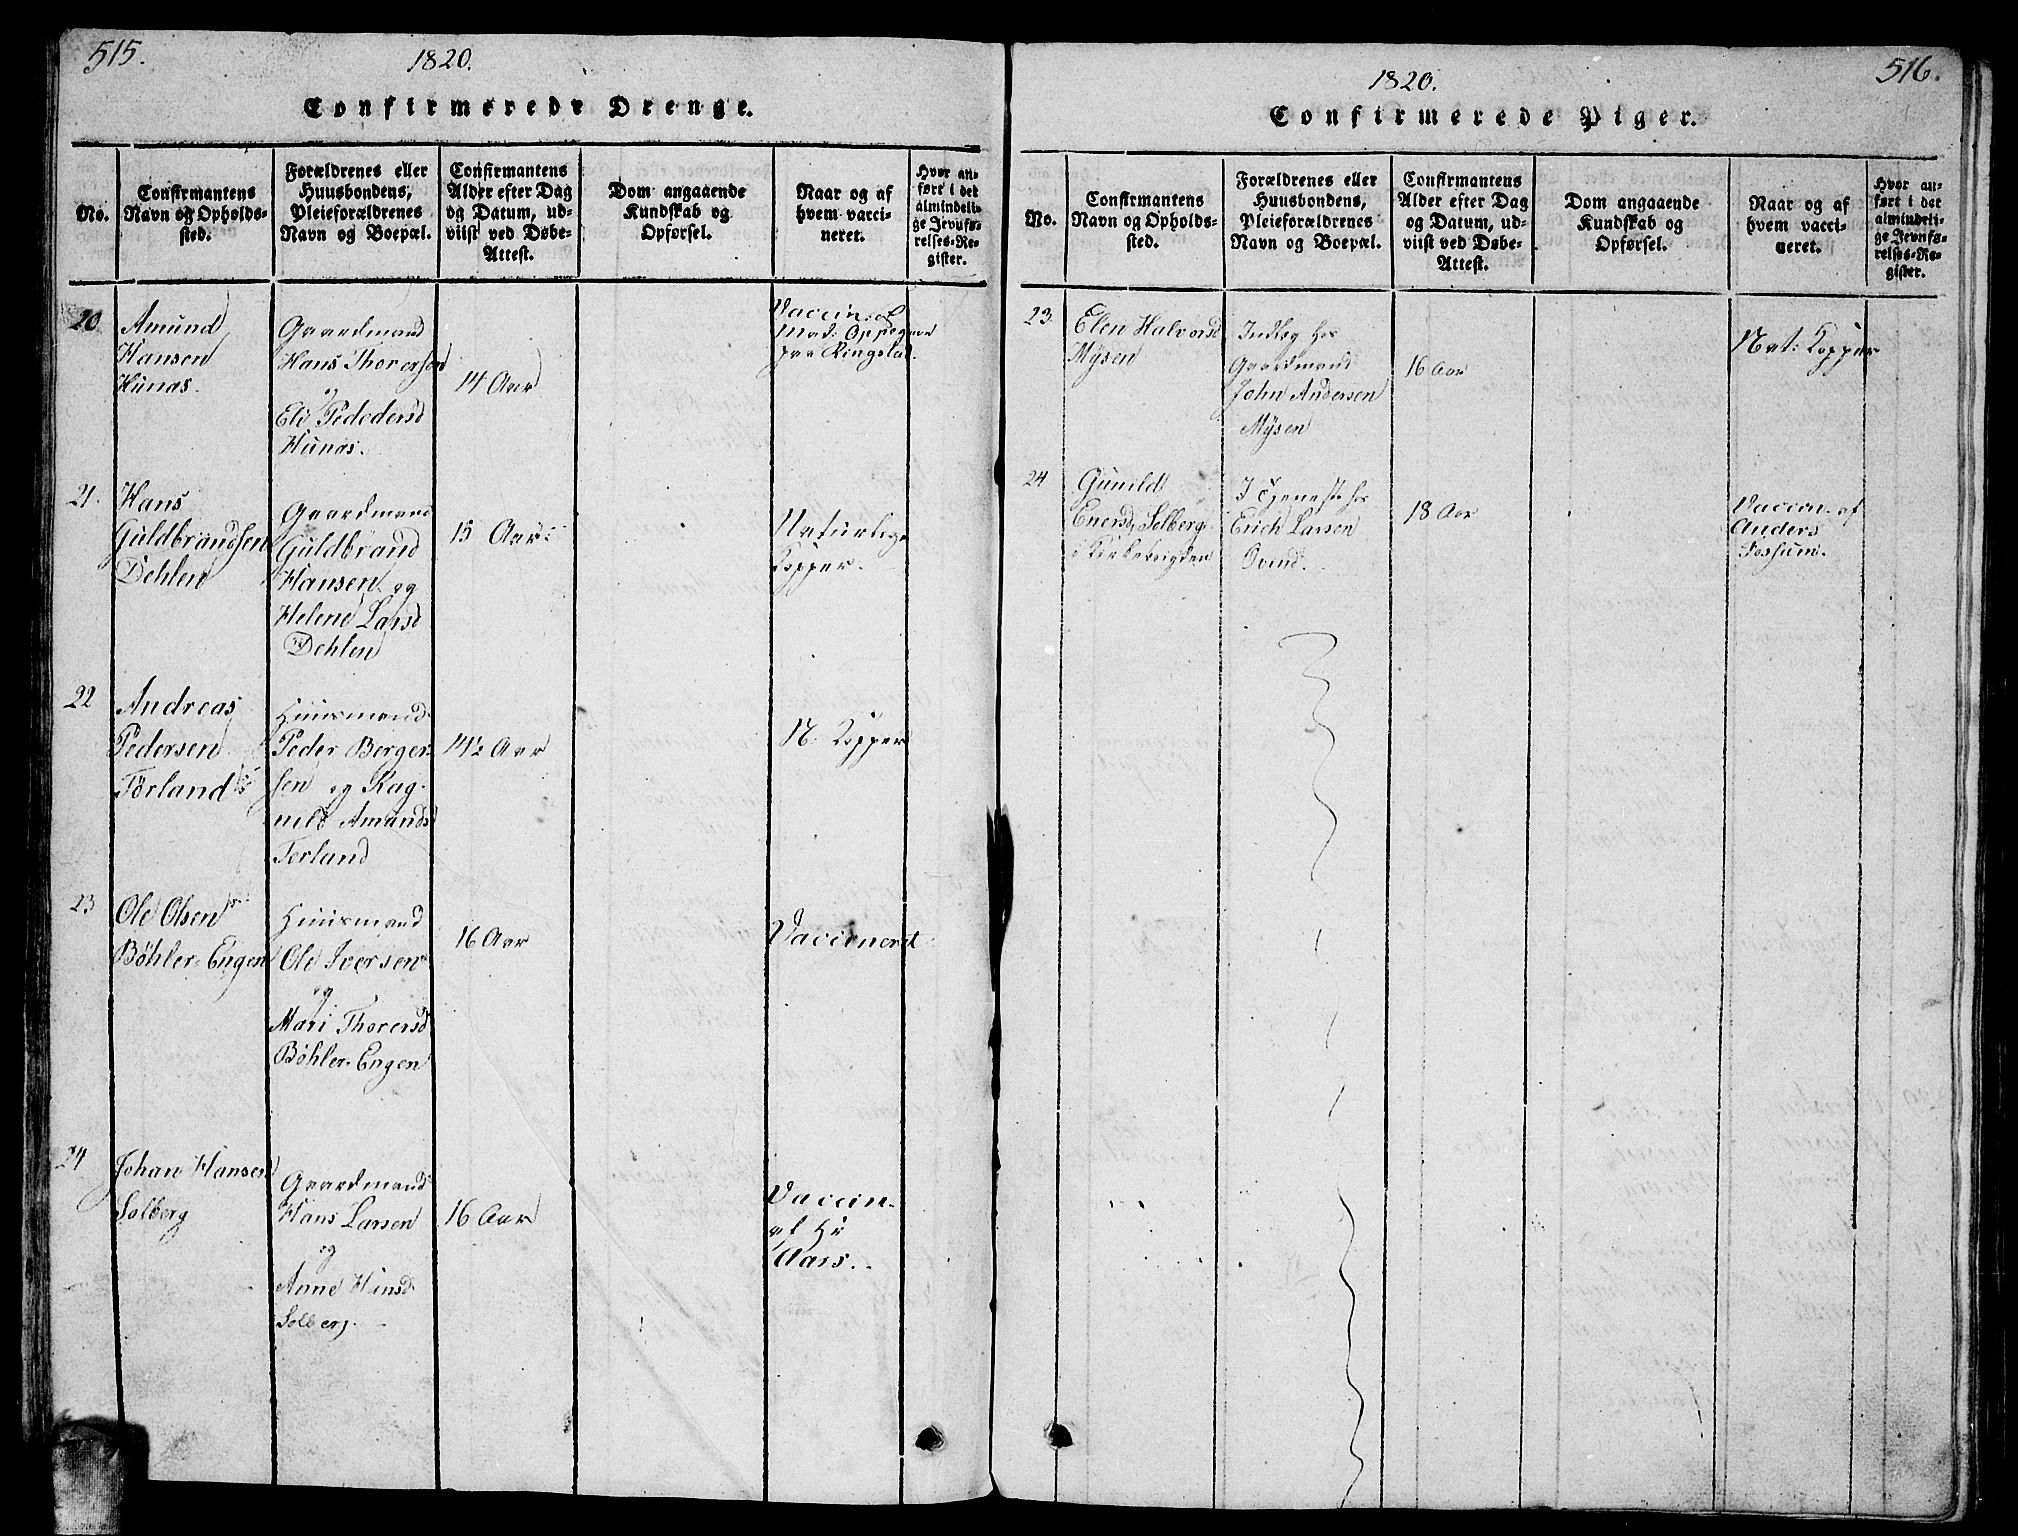 515.
1820.
Confirmerede Drenge.
No.
Confirmantens
Navn og Opholds-
sted.
Forældrenes eller
Huusbondens,
Pleieforældrenes
Navn og Boepæl.
Confirmantens
Alder efter Dag
og Datum, ud-
viist ved Døbe-
Attest.
Dom angaaende
Kundskab og
Opførsel.
Naar og af
hvem vacci-
neret.
Hvor an-
ført i det
almindeli-
ge Jevnfø-
relses-Re-
gister.
20
Amund
Hansen
Hunas.
Gaardmand
Hans Thorersen
og
Eli Pededersd
Hunas.
14 Aar
Vaccin: af
Mad: Oppegaar
paa Ringslad.
21.
Hans
Guldbrandsen
Dehlen
Gaardmand
Guldbrand
Hansen og
Helene Larsd
Dehlen
15 Aar
Naturlige
Kopper.
22
Andreas
Pedersen
Törland
Huusmand
Peder Berger-
sen og Rag-
nild Amunds
Terland
14½ Aar
N. Kopper
23
Ole Olsen
Bøhler-Engen
Huusmand
Ole Iversen
og
Mari Thorersd
Bøhler-Engen
16 Aar
Vaccineret
24
Johan Hansen
Solberg
Gaardmand
Hans Larsen
og
Anne Hansd
Solberg.
16 Aar
Vaccin.
af Hr
Aars.
516.
1820.
Confirmerede Piger.
No.
Confirmantens
Navn og Opholds-
sted.
Forældrenes eller
Huusbondens,
Pleieforældrenes
Navn og Boepæl.
Confirmantens
Alder efter Dag
og Datum, ud-
viist ved Døbe-
Attest.
Dom angaaende
Kundskab og
Opførsel.
Naar og af
hvem vacci-
neret.
Hvor an-
ført i det
almindeli-
ge Jevnfø-
relses-Re-
gister.
23
Elen Halvorsd
Mÿsen
Indløg hos
Gaardmand
John Andersen
Mÿsen
16 Aar
Nat: Kopper
24
Gunild
Enersd Solberg
i Kirkebrigden
I Tjeneste hos
Erich Larsen
Ovind.
18 Aar
Vaccin. af
Anders
Fossum.